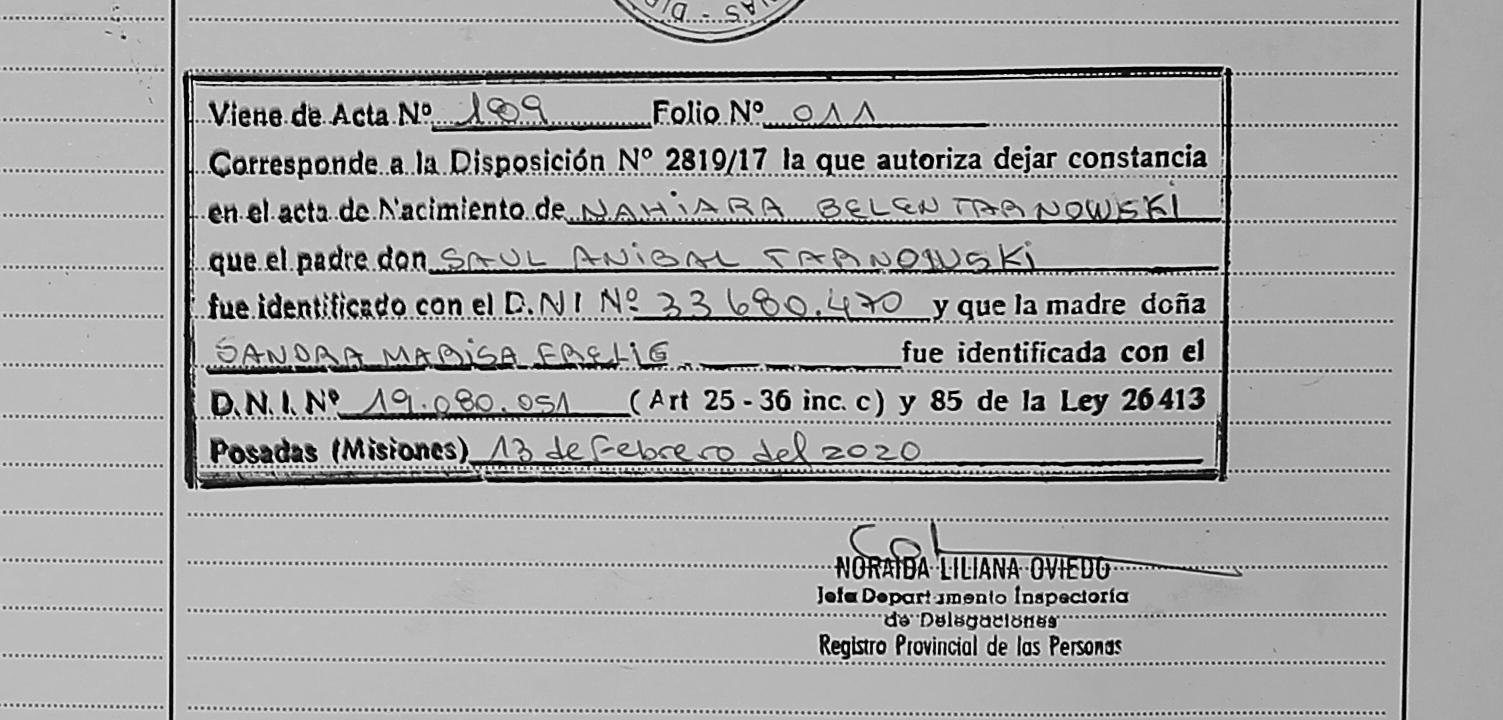 Viene de Acta Nº 189 Folio Nº 011
Corresponde a la Disposición Nº 2819/17 la que autoriza dejar constancia
en el acta de Nacimiento de NAHiARA BELEN TARNOWSKi
que el padre don SAUL ANiBAL TARNOWSKi
fue identificado con el D.N I Nº 33 680.470 y que la madre doña
SANDRA MARiSA fue identificada con el
D.N.I. Nº 19.080.051 (Art 25 - 36 inc. c) y 85 de la Ley 26413
Posadas (Misiones) 13 de Febrero del 2020
NORAIDA LILIANA OVIEDO
Jefa Departamento Inspectoría
de Delegaciones
Registro Provincial de las Personas